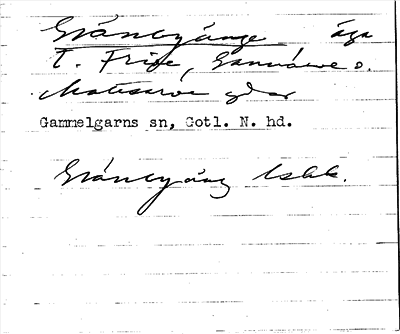 Gråneyänge äga
t. Frije, Gannarve o.
Matsarve gdar
Gammelgarns sn, Gotl. N. hd.
Gråneyäng